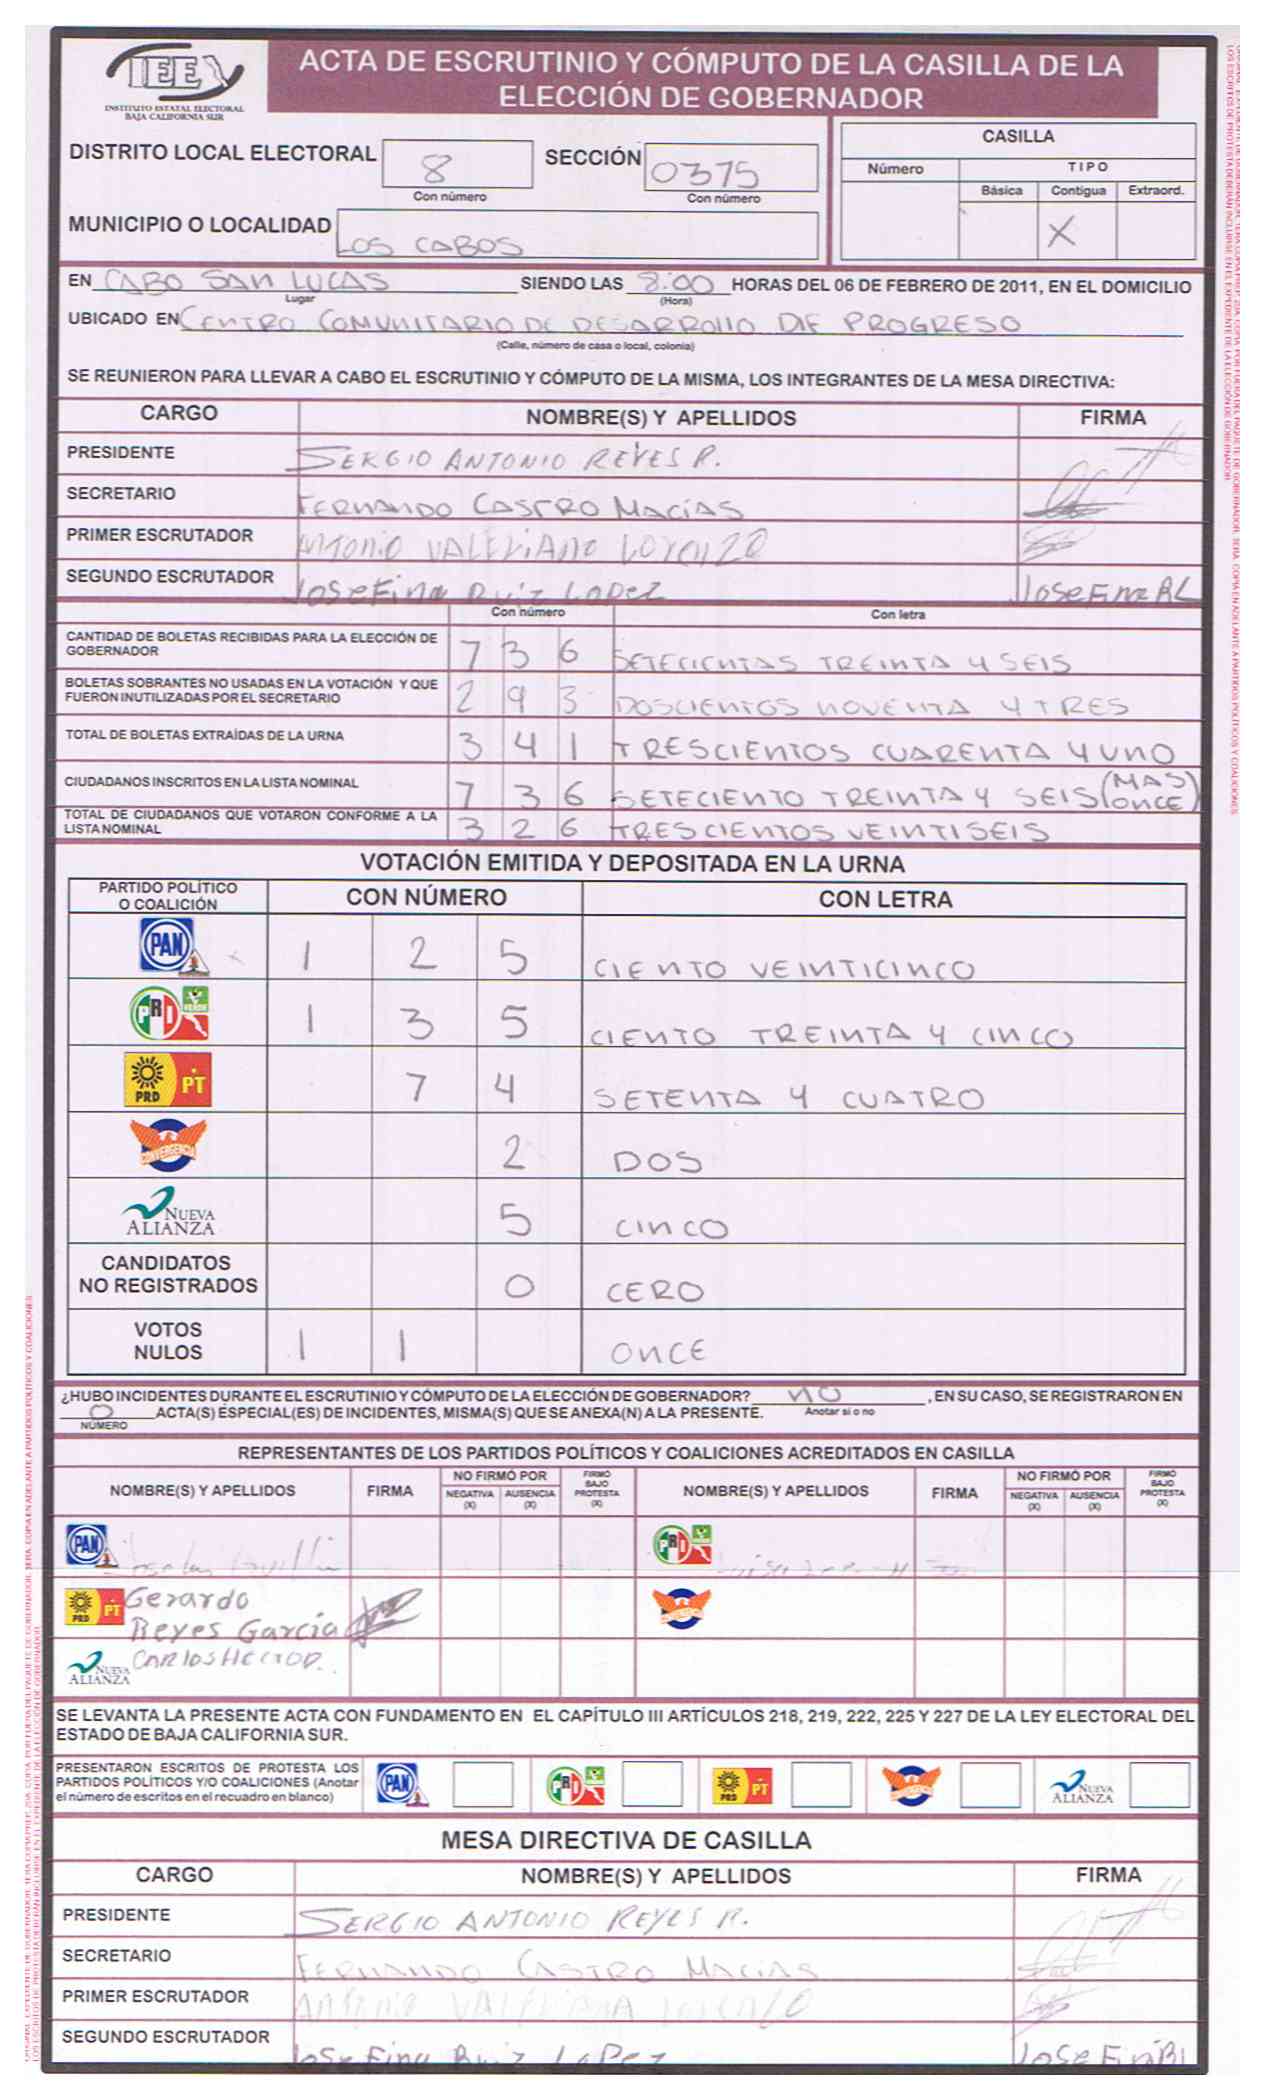 IEE
INSTITUTO ESTATAL ELECTORAL
BAJA CALIFORNIA SUR
ACTA DE ESCRUTINIO Y CÓMPUTO DE LA CASILLA DE LA
ELECCIÓN DE GOBERNADOR
DISTRITO LOCAL ELECTORAL 8 SECCIÓN 0375
Con número Con número
MUNICIPIO O LOCALIDAD LOS CABOS
CASILLA
Número TIPO
Básica Contigua Extraord.
X
EN CABO SAN LUCAS SIENDO LAS 8:00 HORAS DEL 06 DE FEBRERO DE 2011, EN EL DOMICILIO
Lugar (Hora)
UBICADO EN CENTRO COMUNITARIO DE DESARROLLO DIF PROGRESO
(Calle, número de casa o local, colonia)
SE REUNIERON PARA LLEVAR A CABO EL ESCRUTINIO Y CÓMPUTO DE LA MISMA, LOS INTEGRANTES DE LA MESA DIRECTIVA:
CARGO NOMBRE(S) Y APELLIDOS FIRMA
PRESIDENTE SERGIO ANTONIO REYES R.
SECRETARIO FERNANDO CASTRO MACÍAS
PRIMER ESCRUTADOR ANTONIO VALERIANO LORENZO
SEGUNDO ESCRUTADOR JOSEFINA RUIZ LOPEZ
Con número Con letra
CANTIDAD DE BOLETAS RECIBIDAS PARA LA ELECCIÓN DE
GOBERNADOR 7 3 6 SETECIENTAS TREINTA Y SEIS
BOLETAS SOBRANTES NO USADAS EN LA VOTACIÓN Y QUE
FUERON INUTILIZADAS POR EL SECRETARIO 2 9 3 DOSCIENTOS NOVENTA Y TRES
TOTAL DE BOLETAS EXTRAÍDAS DE LA URNA 3 4 1 TRESCIENTOS CUARENTA Y UNO
CIUDADANOS INSCRITOS EN LA LISTA NOMINAL 7 3 6 SETECIENTO TREINTA Y SEIS (MAS ONCE)
TOTAL DE CIUDADANOS QUE VOTARON CONFORME A LA
LISTA NOMINAL 3 2 6 TRESCIENTOS VEINTISEIS
VOTACIÓN EMITIDA Y DEPOSITADA EN LA URNA
PARTIDO POLÍTICO
O COALICIÓN CON NÚMERO CON LETRA
PAN 1 2 5 CIENTO VEINTICINCO
PRI VERDE 1 3 5 CIENTO TREINTA Y CINCO
PRD PT 7 4 SETENTA Y CUATRO
CONVERGENCIA 2 DOS
NUEVA ALIANZA 5 CINCO
CANDIDATOS
NO REGISTRADOS 0 CERO
VOTOS
NULOS 1 1 ONCE
¿HUBO INCIDENTES DURANTE EL ESCRUTINIO Y CÓMPUTO DE LA ELECCIÓN DE GOBERNADOR? NO, EN SU CASO, SE REGISTRARON EN
0 ACTA(S) ESPECIAL(ES) DE INCIDENTES, MISMA(S) QUE SE ANEXA(N) A LA PRESENTE. Anotar si o no
NÚMERO
REPRESENTANTES DE LOS PARTIDOS POLÍTICOS Y COALICIONES ACREDITADOS EN CASILLA
NOMBRE(S) Y APELLIDOS FIRMA NO FIRMÓ POR NEGATIVA (X) AUSENCIA (X) FIRMÓ BAJO PROTESTA (X) NOMBRE(S) Y APELLIDOS FIRMA NO FIRMÓ POR NEGATIVA (X) AUSENCIA (X) FIRMÓ BAJO PROTESTA (X)
PAN PRI
PRD PT Gerardo
Reyes García
NUEVA ALIANZA CARLOS HECTOR.
SE LEVANTA LA PRESENTE ACTA CON FUNDAMENTO EN EL CAPÍTULO III ARTÍCULOS 218, 219, 222, 225 Y 227 DE LA LEY ELECTORAL DEL
ESTADO DE BAJA CALIFORNIA SUR.
PRESENTARON ESCRITOS DE PROTESTA LOS
PARTIDOS POLÍTICOS Y/O COALICIONES (Anotar
el número de escritos en el recuadro en blanco)
PAN PRI PRD PT CONVERGENCIA NUEVA ALIANZA
MESA DIRECTIVA DE CASILLA
CARGO NOMBRE(S) Y APELLIDOS FIRMA
PRESIDENTE SERGIO ANTONIO REYES R.
SECRETARIO FERNANDO CASTRO MACIAS
PRIMER ESCRUTADOR ANTONIO VALERIANA LORENZO
SEGUNDO ESCRUTADOR JOSEFINA RUIZ LOPEZ